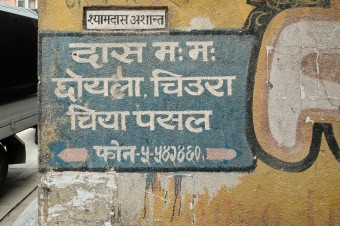 श्यामदास अशान्त
दास म: म:
छोयला, चिउरा
चिया पसल
फोन-५-५४१४६०